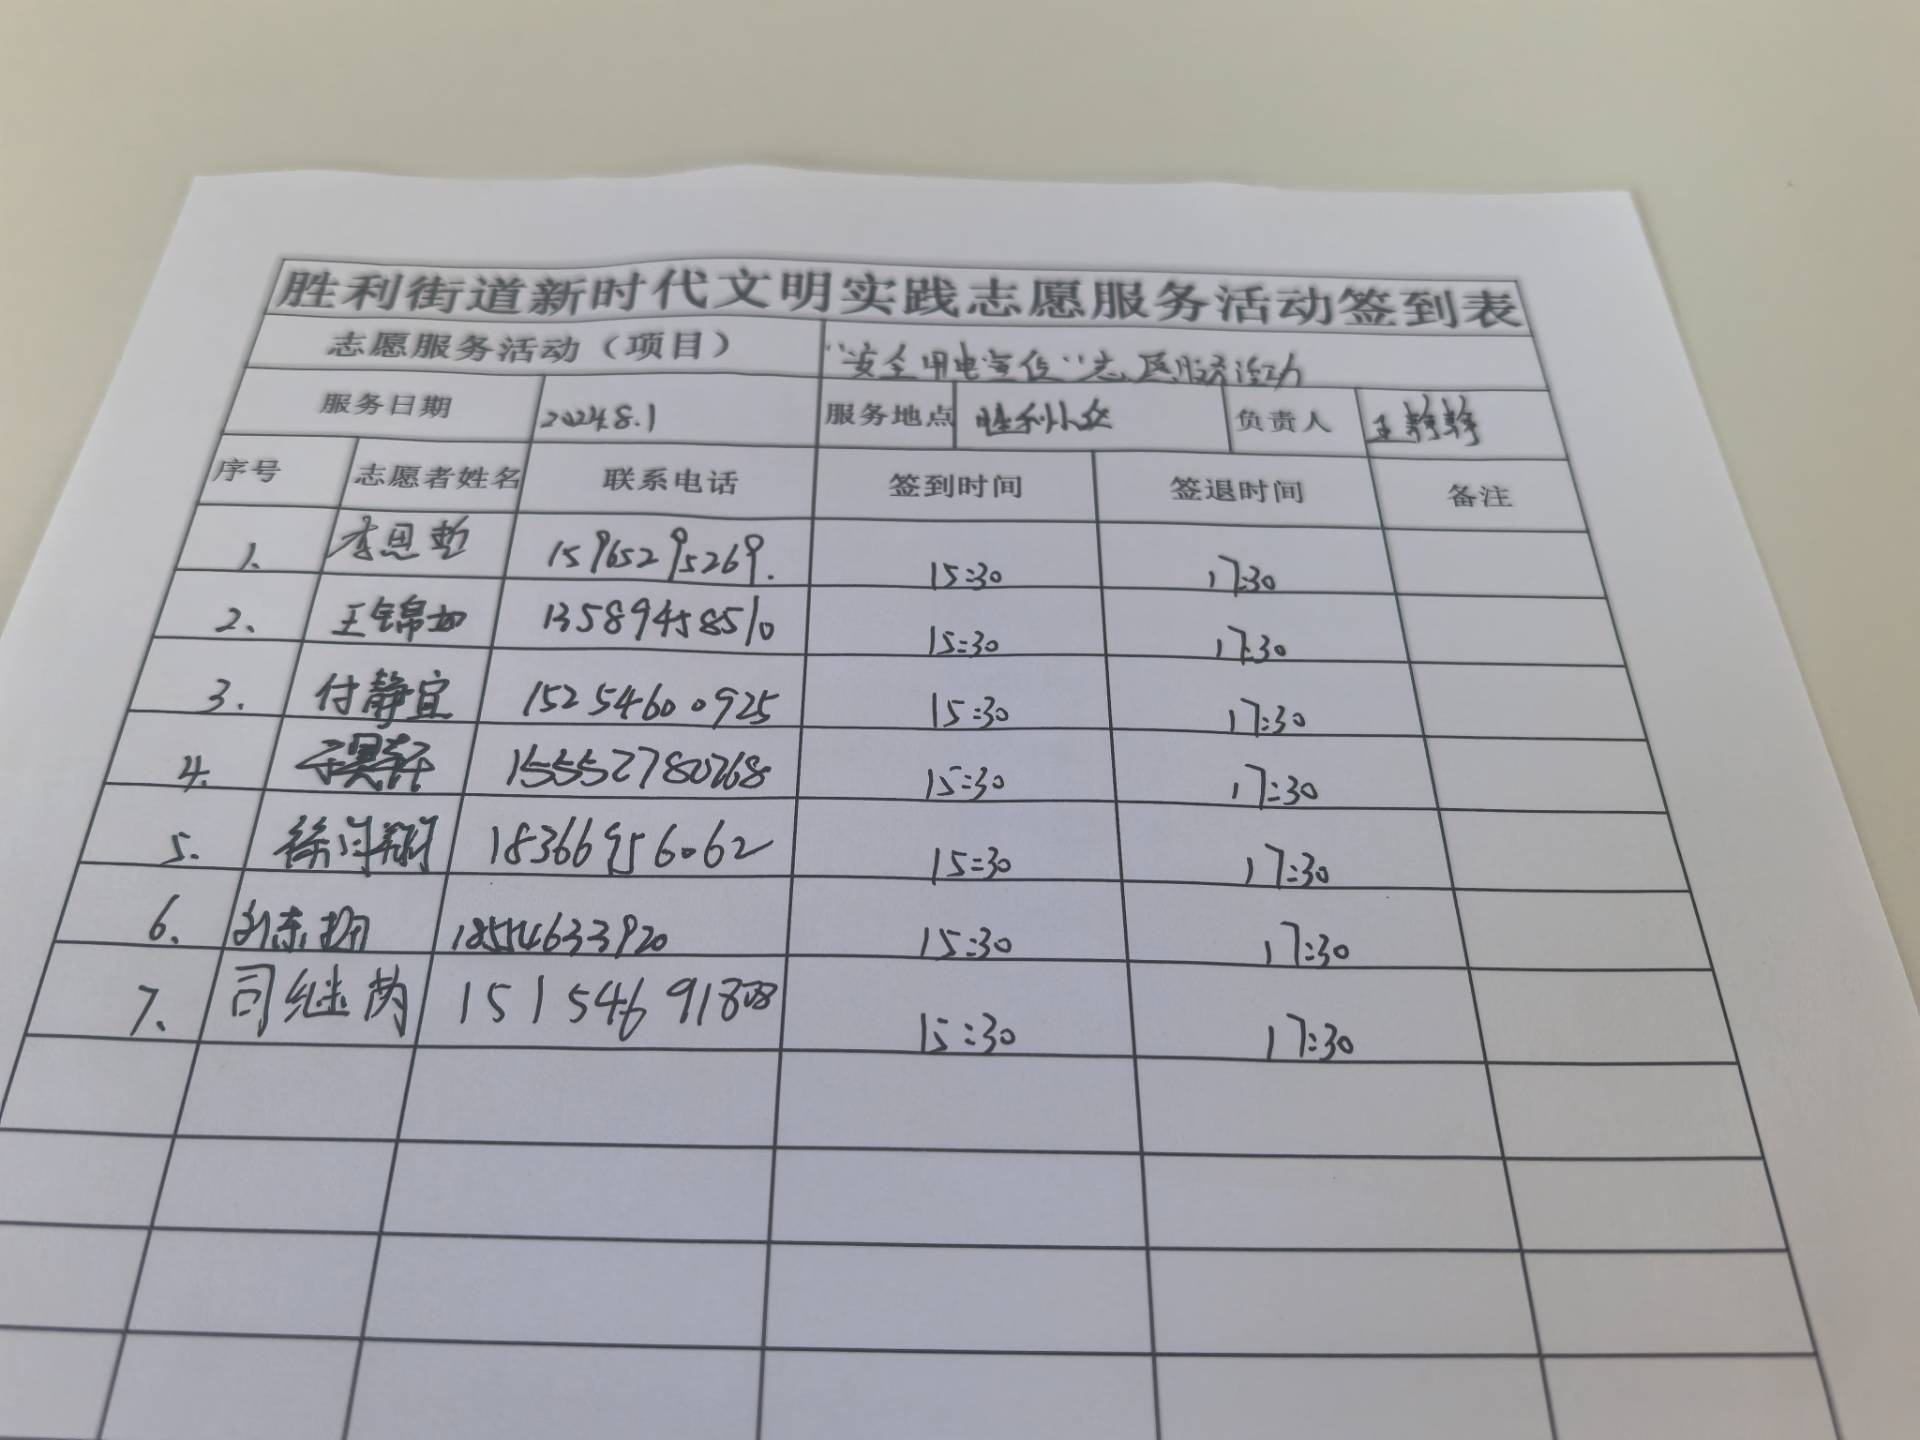 胜利街道新时代文明实践志愿服务活动签到表
志愿服务活动（项目） “安全用电宣传”志愿服务活动
服务日期 2024.8.1 服务地点 胜利小区 负责人 王静静
序号 志愿者姓名 联系电话 签到时间 签退时间 备注
1. 李思 15965295269. 15:30 17:30
2. 王锦 13589458510 15:30 17:30
3. 付静宜 15254600925 15:30 17:30
4. 于昊轩 15552780268 15:30 17:30
5. 徐 18366956062 15:30 17:30
6. 刘东 15:30 17:30
7. 司继芮 15:30 17:30